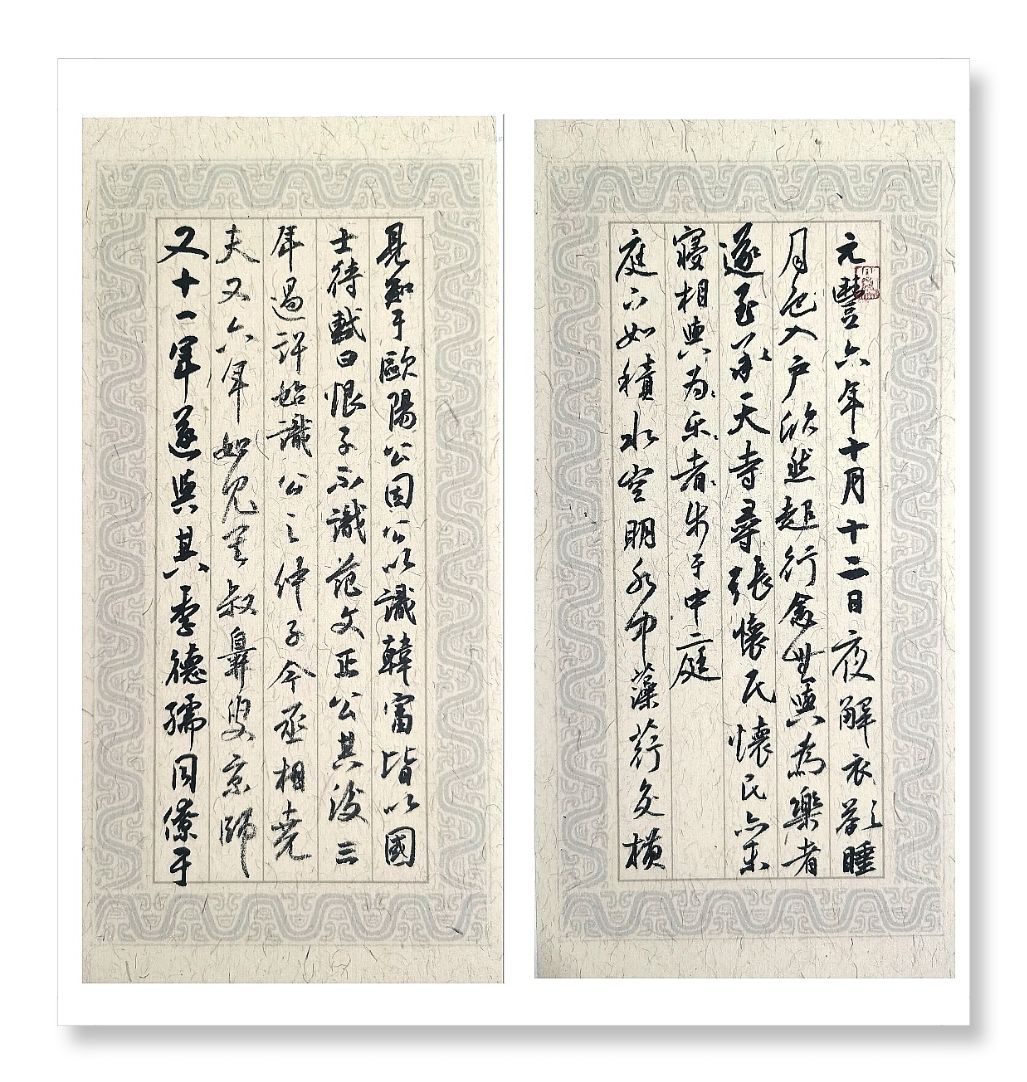 元豐六年十月十二日夜解衣欲睡
月色入户欣然起行念無與為樂者
遂至承天寺尋張懷民懷民亦未
寢相與为乐者步于中庭
庭下如積水空明水中藻荇交横
見知于歐陽公因公以識韓富皆以國
士待軾曰恨子不識范文正公其後三
年過許始識公之仲子今丞相堯
夫又六年始見其叔彝叟京師
又十一年遂與其季德孺同僚于